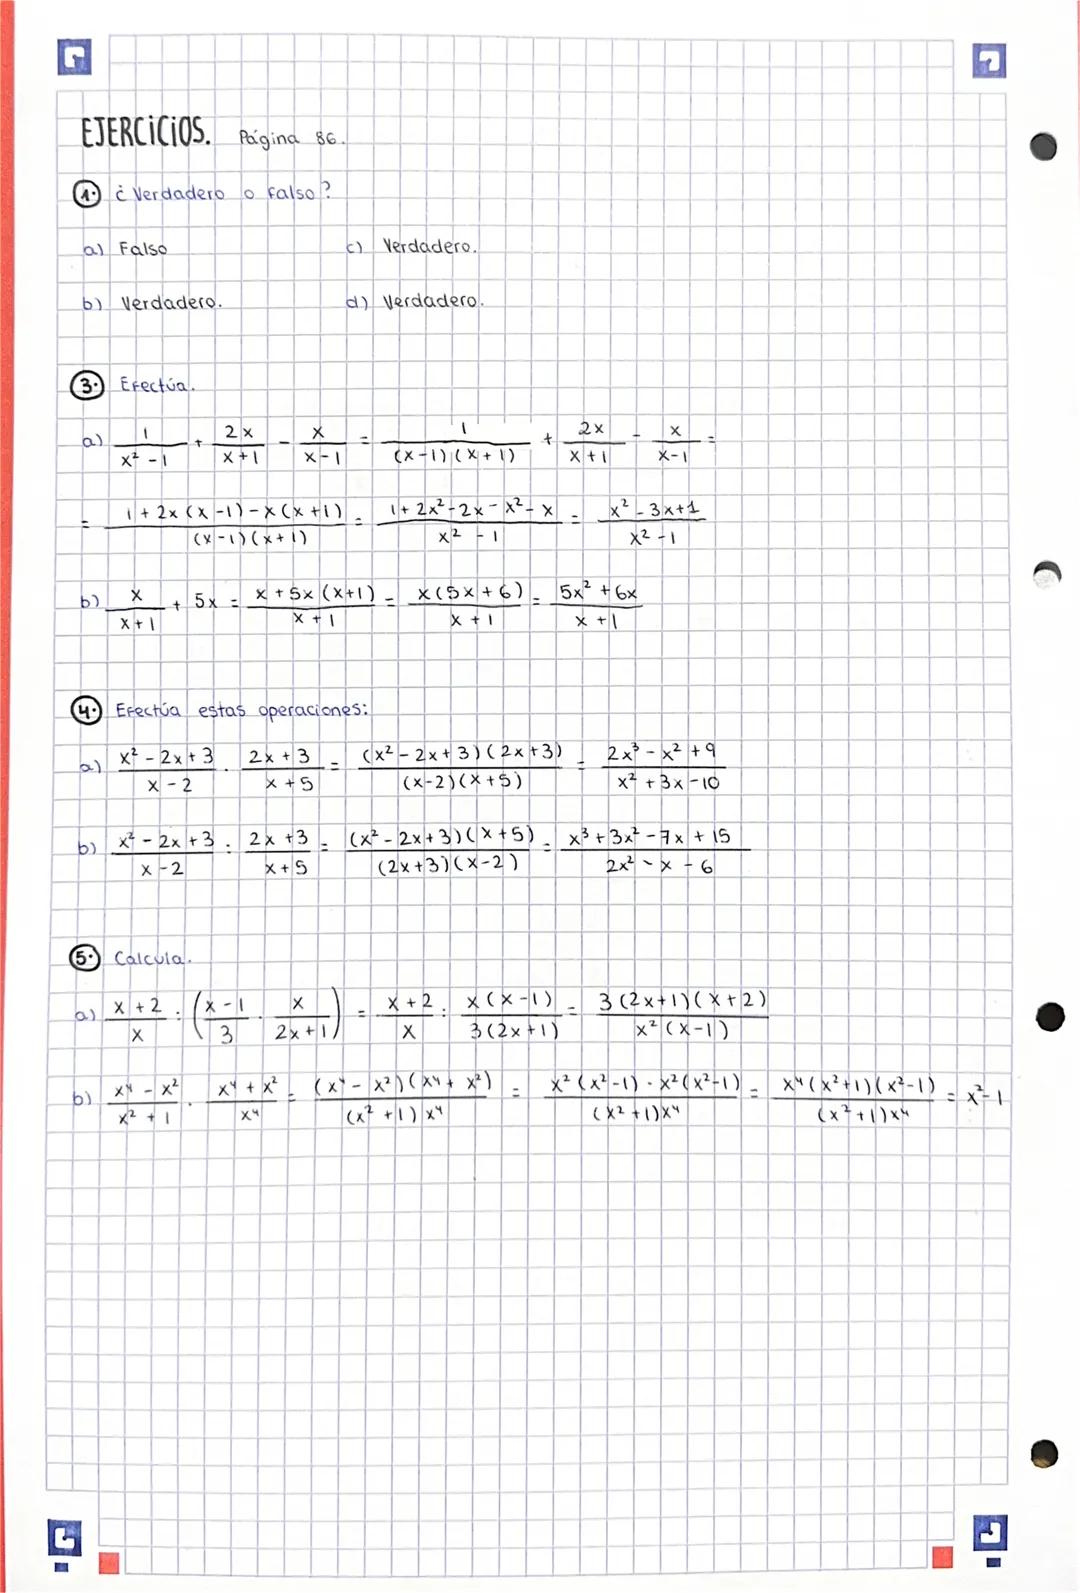 EJERCICIOS. Página 86.
1. ¿Verdadero o falso?
a) Falso c) Verdadero.
b) Verdadero. d) Verdadero.
3. Efectúa.
a) 1/(x² - 1) + 2x/(x+1) - x/(x-1) = 1/((x-1)(x+1)) + 2x/(x+1) - x/(x-1) =
= (1+2x(x-1)-x(x+1))/((x-1)(x+1)) = (1+2x²-2x-x²-x)/(x² - 1) = (x²-3x+1)/(x²-1)
b) x/(x+1) + 5x = (x+5x(x+1))/(x+1) = (x(5x+6))/(x+1) = (5x²+6x)/(x+1)
4. Efectúa estas operaciones:
a) (x²-2x+3)/(x-2) · (2x+3)/(x+5) = ((x²-2x+3)(2x+3))/((x-2)(x+5)) = (2x³-x²+9)/(x²+3x-10)
b) (x²-2x+3)/(x-2) : (2x+3)/(x+5) = ((x²-2x+3)(x+5))/((2x+3)(x-2)) = (x³+3x²-7x+15)/(2x²-x-6)
5. Calcula.
a) (x+2)/x : ((x-1)/3 · x/(2x+1)) = (x+2)/x : (x(x-1))/(3(2x+1)) = (3(2x+1)(x+2))/(x²(x-1))
b) (x⁴-x²)/(x²+1) · (x⁴+x²)/x⁴ = ((x⁴-x²)(x⁴+x²))/((x²+1)x⁴) = (x²(x²-1)·x²(x²-1))/((x²+1)x⁴) = (x⁴(x²+1)(x²-1))/((x²+1)x⁴) = x²-1